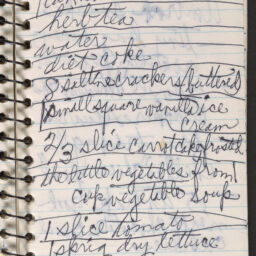 herb tea
water
diet coke
8 saltine crackers buttered
small square vanilla ice
cream
2/3 slice carrot cake frosted
the little vegetables from
cup vegetable soup
1 slice tomato
1 sprig dry lettuce